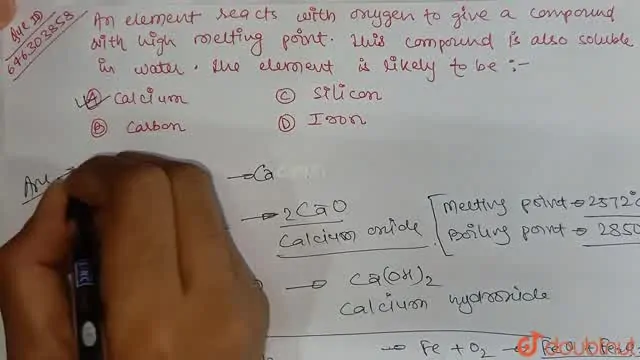 Que ID
646303858
An element reacts with oxygen to give a compound
with high melting point. This compound is also soluble
in water. The element is likely to be :-
A Calcium
C Silicon
B Carbon
D Iron
Ans
→ Ca
→ 2CaO
Calcium oxide
Melting point → 2572°C
Boiling point → 2850
→ Ca(OH)2
Calcium hydroxide
→ Fe + O2 → FeO
doubtnut